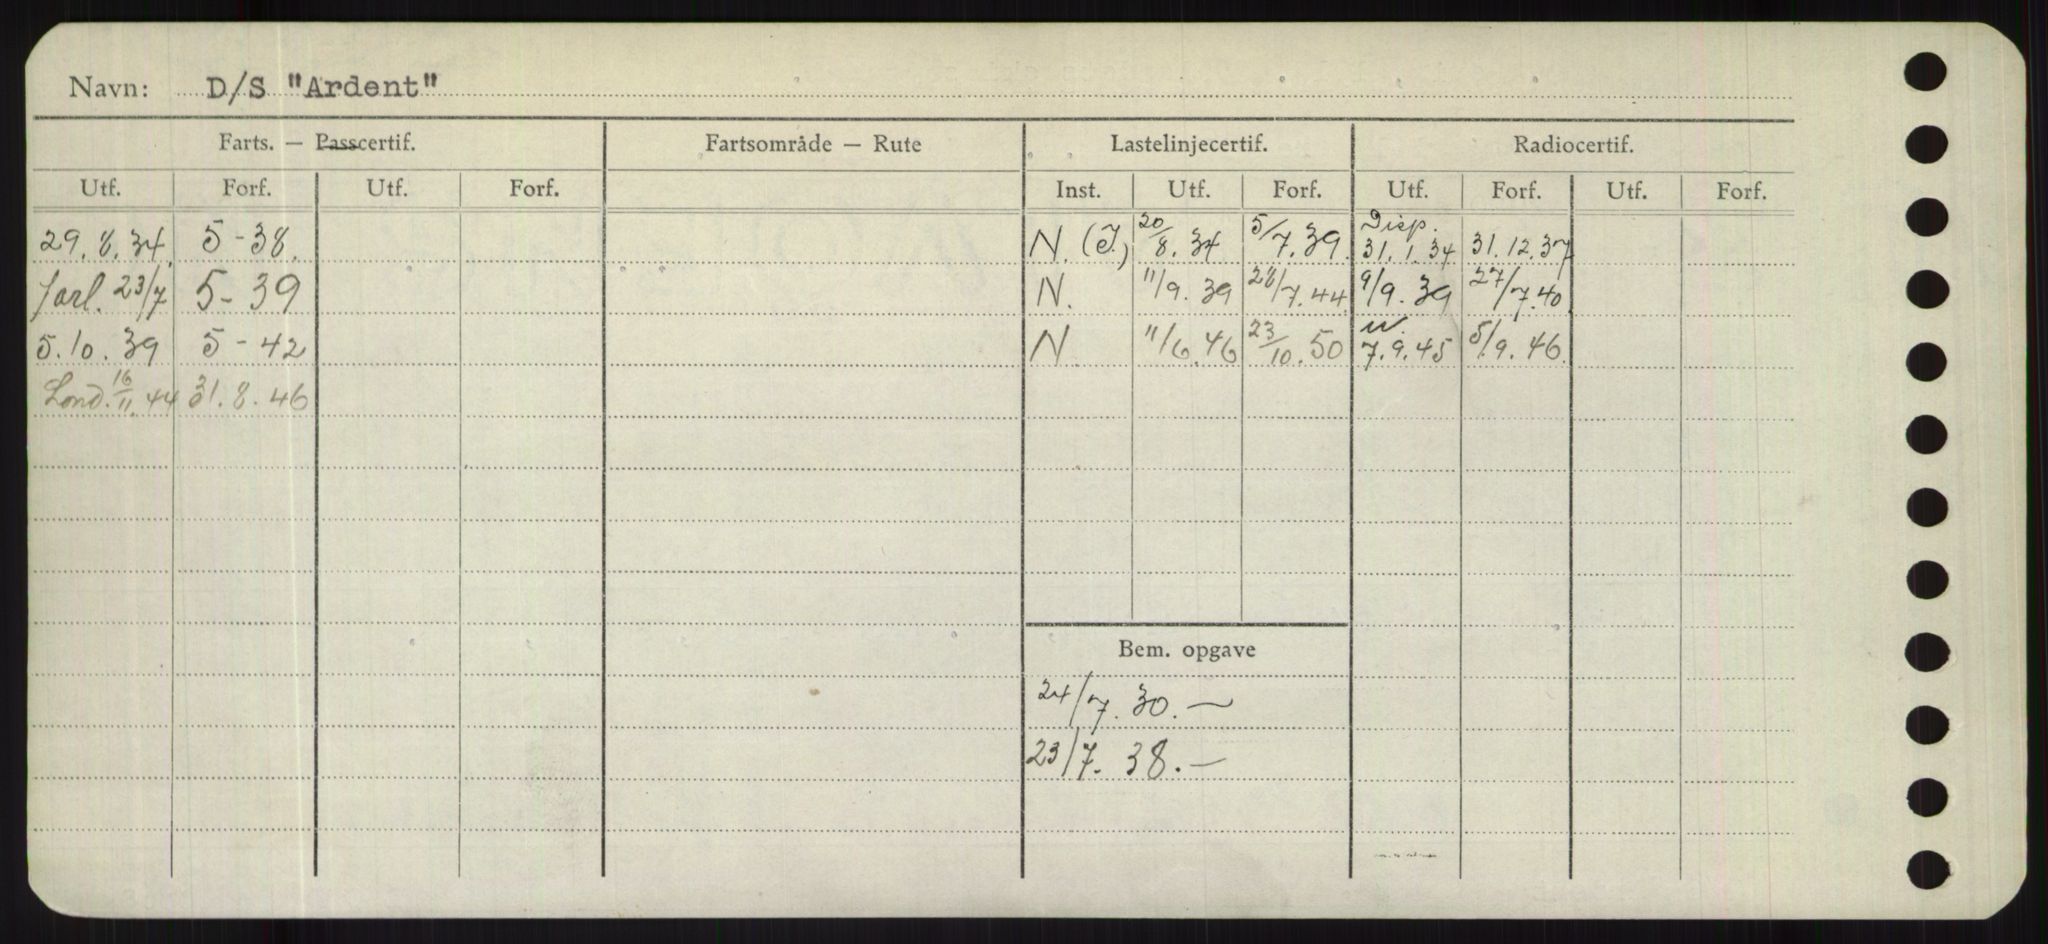 Navn: D/S "Ardent"
Farts. — Passcertif. Fartsområde — Rute Lastelinjecertif. Radiocertif.
Utf. Forf. Utf. Forf. Inst. Utf. Forf. Utf. Forf. Utf. Forf.
29.8.34. 5-38. N. (I.) 20/8.34 5/7.39. Disp. 31.1.34 31.12.37
forl. 23/7 5-39 N. 11/9.39 28/7.44 9/9.39 27/7.40
5.10.39 5-42 N. 11/6.46 23/10.50 7.9.45 5/9.46.
Lond. 16/11.44 31.8.46
Bem. opgave
24/7.30.—
23/7.38.—